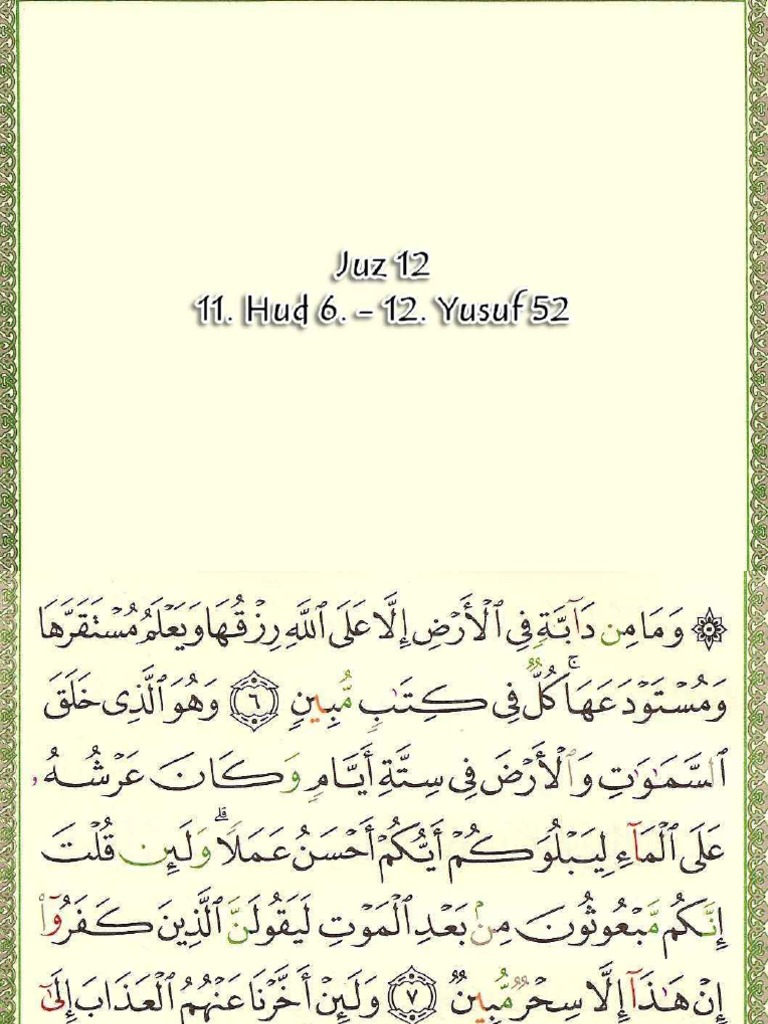 Juz 12
11. Hud 6. - 12. Yusuf 52
۞ وَمَا مِن دَآبَّةٍ فِى ٱلْأَرْضِ إِلَّا عَلَى ٱللَّهِ رِزْقُهَا وَيَعْلَمُ مُسْتَقَرَّهَا
وَمُسْتَوْدَعَهَا ۚ كُلٌّ فِى كِتَـٰبٍ مُّبِينٍ ٦ وَهُوَ ٱلَّذِى خَلَقَ
ٱلسَّمَـٰوَٰتِ وَٱلْأَرْضَ فِى سِتَّةِ أَيَّامٍ وَكَانَ عَرْشُهُۥ
عَلَى ٱلْمَآءِ لِيَبْلُوَكُمْ أَيُّكُمْ أَحْسَنُ عَمَلًا ۗ وَلَئِن قُلْتَ
إِنَّكُم مَّبْعُوثُونَ مِنۢ بَعْدِ ٱلْمَوْتِ لَيَقُولَنَّ ٱلَّذِينَ كَفَرُوٓا۟
إِنْ هَـٰذَآ إِلَّا سِحْرٌ مُّبِينٌ ٧ وَلَئِنْ أَخَّرْنَا عَنْهُمُ ٱلْعَذَابَ إِلَىٰٓ